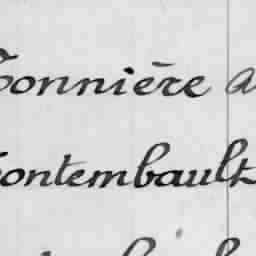 onnière a
ontembault